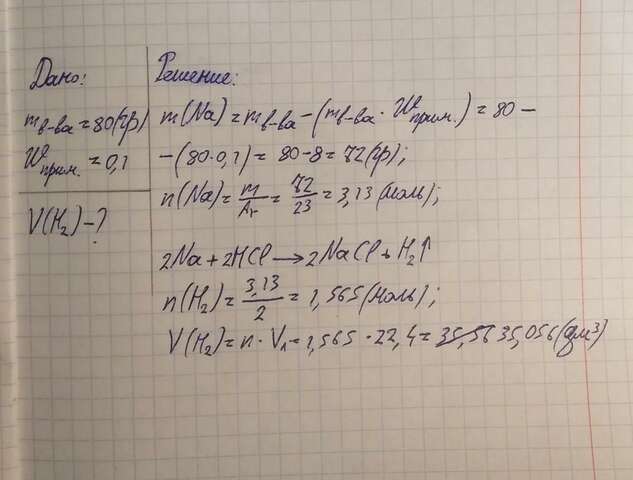 Дано:
m в-ва = 80 (гр)
W прим. = 0,1
V(H₂) - ?
Решение:
m(Na) = m в-ва - (m в-ва · W прим.) = 80 -
- (80·0,1) = 80 - 8 = 72 (гр);
n(Na) = m/Ar = 72/23 = 3,13 (моль);
2Na + 2HCl → 2NaCl + H₂↑
n(H₂) = 3,13/2 = 1,565 (моль);
V(H₂) = n · Vₙ = 1,565 · 22,4 = 35,56 35,056 (дм³)